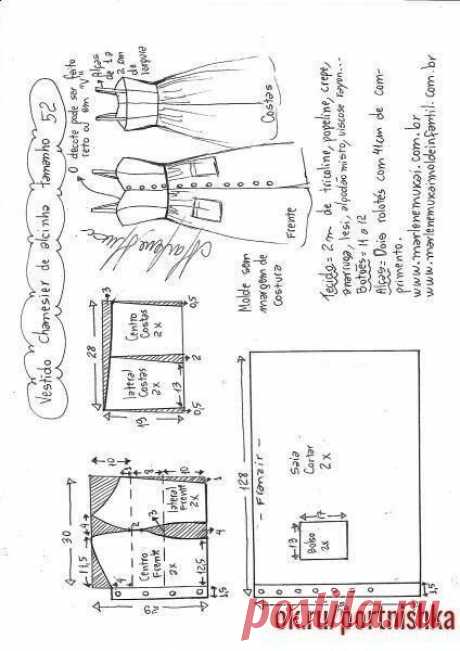 Vestido Chamesier de alcinha tamanho 52
O decote pode ser feito
reto ou em "V"
Alças
de 1 a
2 cm
de
largura
Costas
Frente
Marlene Mukai
Molde sem
margem de
costura
Tecido = 2 m de tricoline, popeline, crepe,
lesi, algodão misto, viscose rayon...
Botões = 11 a 12
Alças = Dois rolotês com 41 cm de com-
primento.
www.marlenemukai.com.br
www.marlenemukaimoldeinfantil.com.br
28
3
Centro
Costas
2x
lateral
Costas
2x
0,5
2
13
0,5
19
30
10
11,5
4
4
8
10
1
2
3
4
lateral
Frente
2x
Centro
Frente
2x
12,5
29
1,5
128
- Franzir -
Saia
Cortar
2x
17
13
Bolso
2x
1,5
postila.ru
ok.ru/portnishka